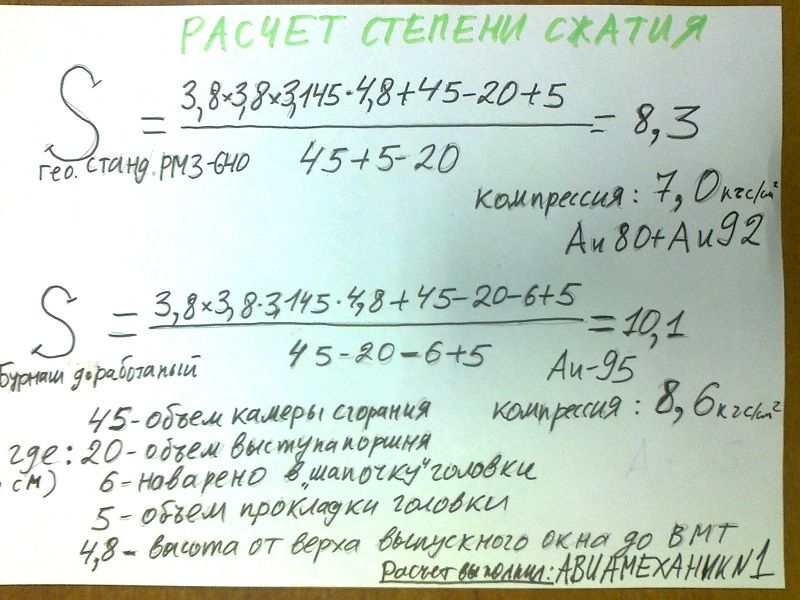 РАСЧЕТ СТЕПЕНИ СЖАТИЯ
S = 3,8×3,8×3,145·4,8+45-20+5 = 8,3
гео. станд. РМЗ-640 45+5-20
компрессия: 7,0 кгс/см²
Аи 80+Аи 92
S = 3,8×3,8·3,145·4,8+45-20-6+5 = 10,1
Бурнаш доработаный 45-20-6+5 Аи-95
45-объем камеры сгорания компрессия: 8,6 кгс/см²
где: 20-объем выступа поршня
см) 6-наварено в „шапочку" головки
5-объем прокладки головки
4,8-высота от верха выпускного окна до ВМТ
Расчет выполнил: АВИАМЕХАНИК N1